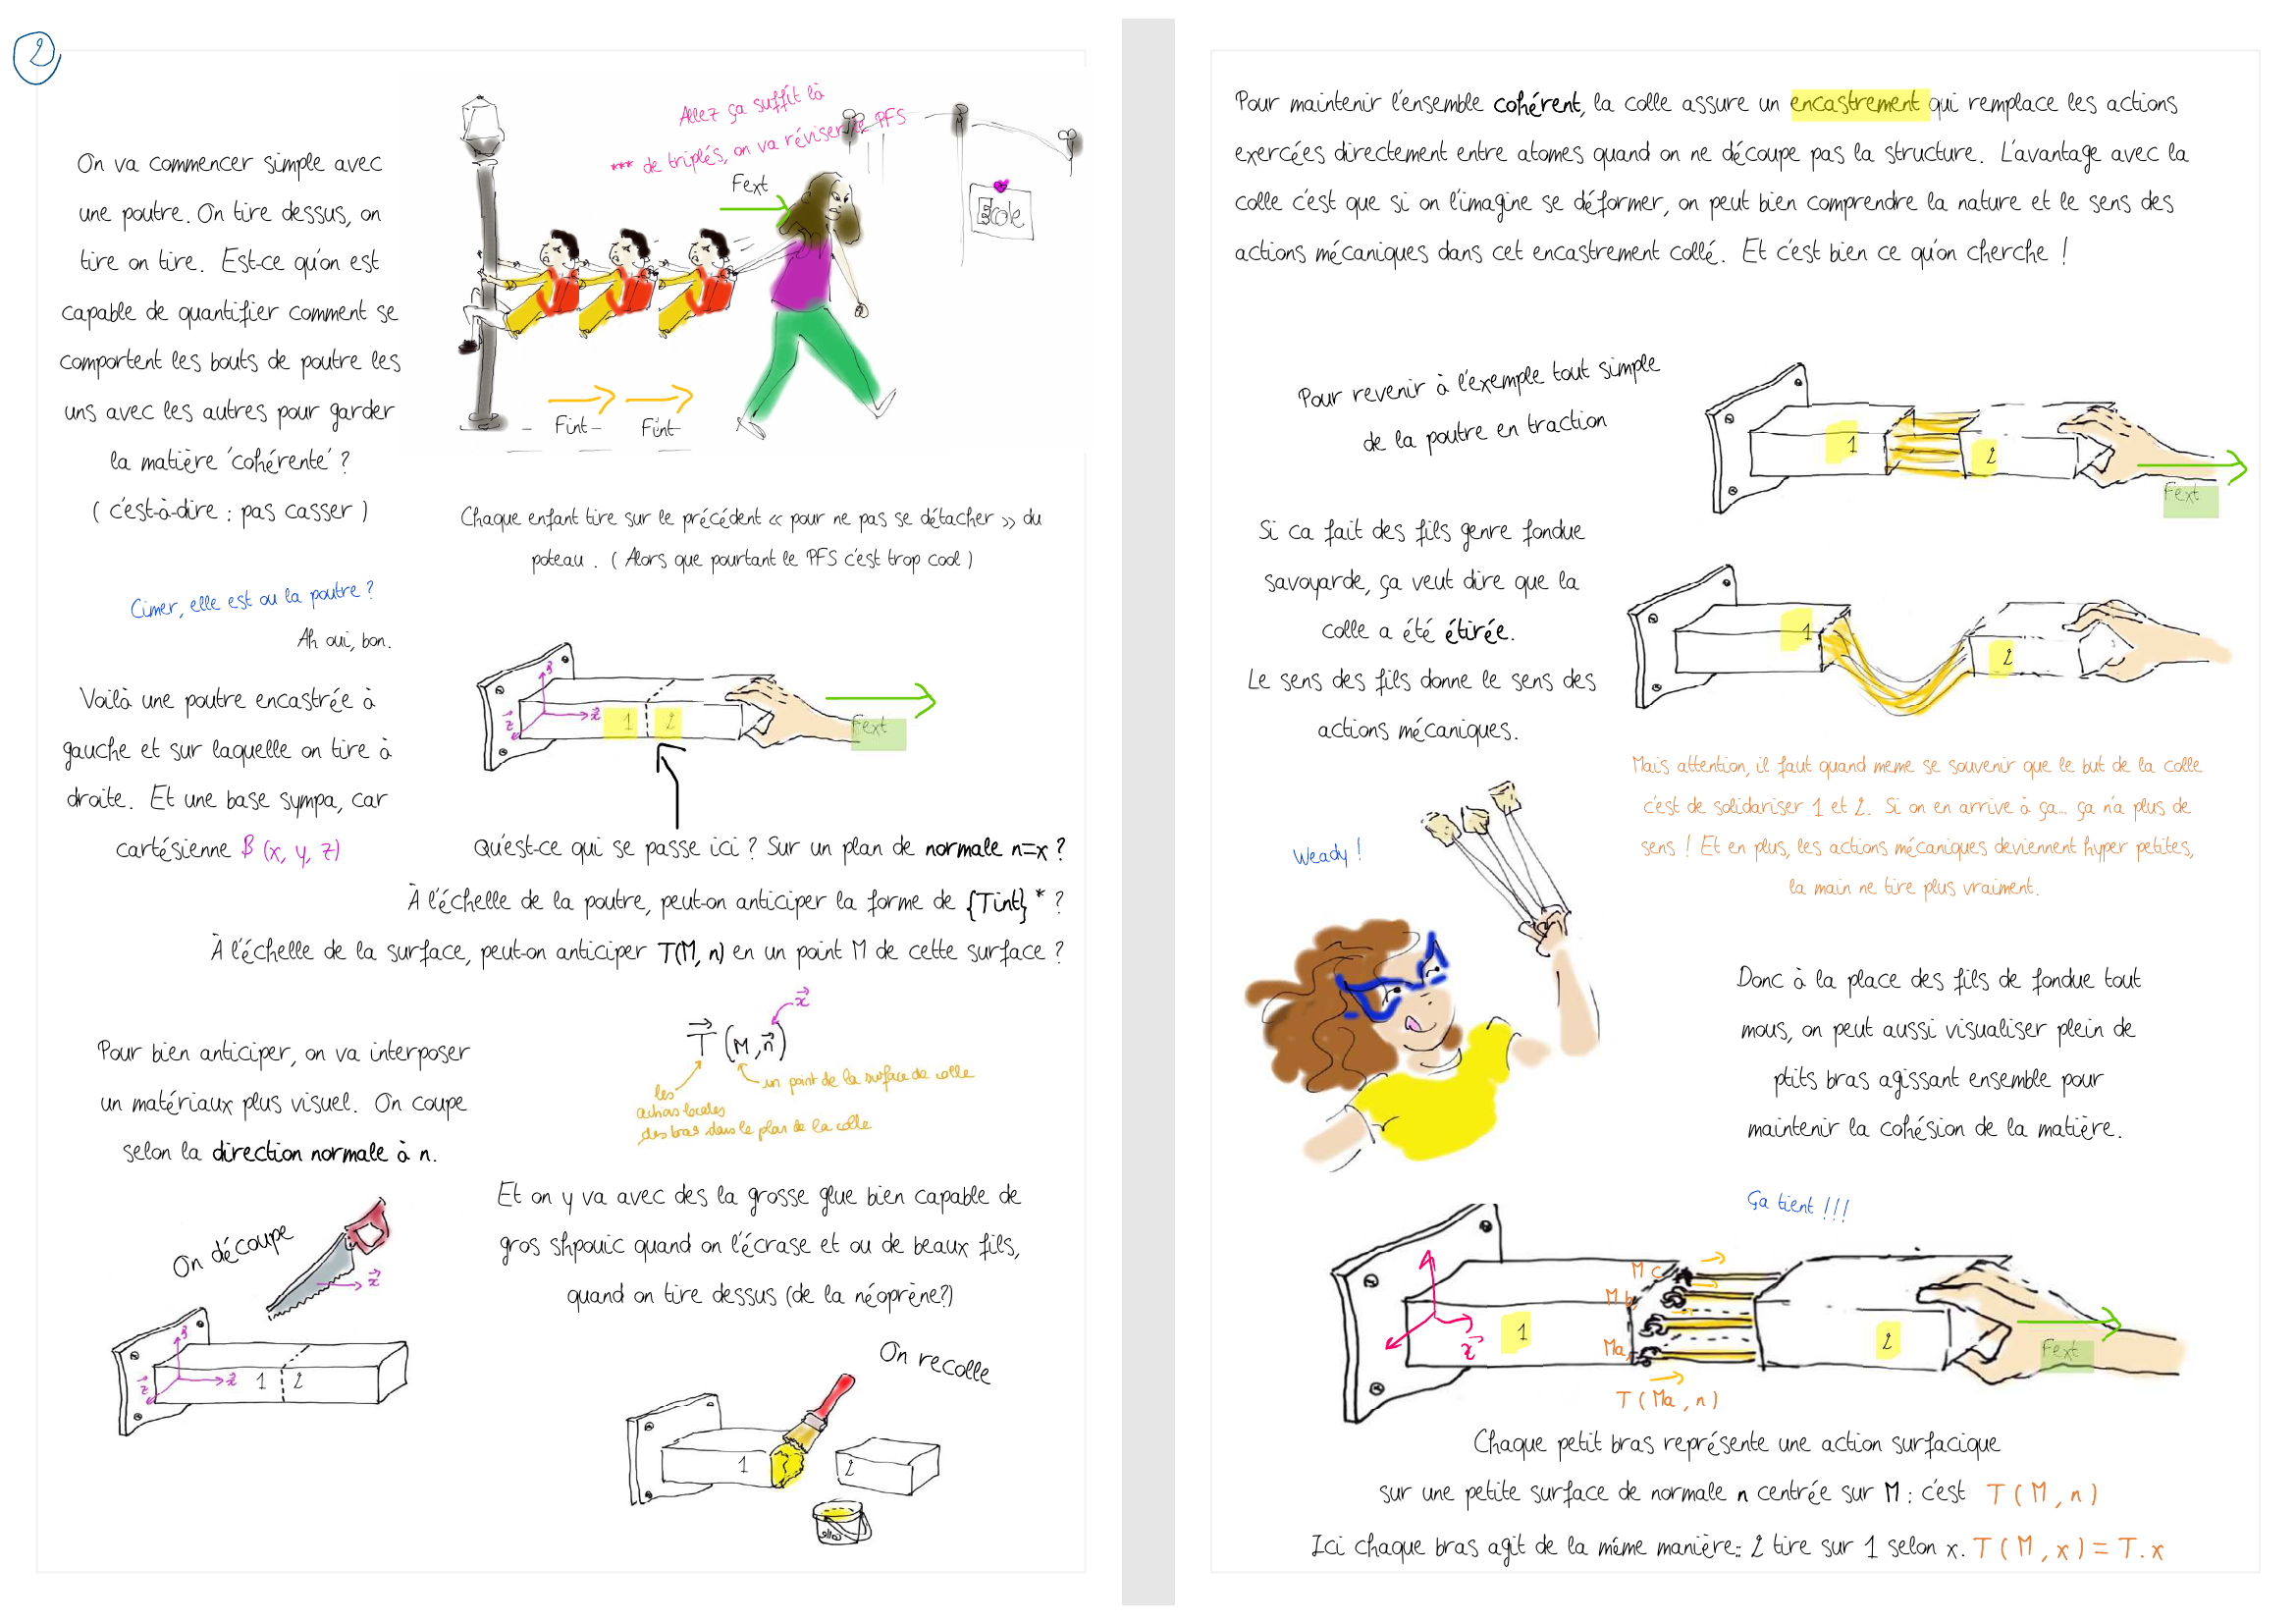 2
On va commencer simple avec
une poutre. On tire dessus, on
tire on tire. Est-ce qu'on est
capable de quantifier comment se
comportent les bouts de poutre les
uns avec les autres pour garder
la matière 'cohérente' ?
( c'est-à-dire : pas casser )
Allez ça suffit là
*** de triplés, on va réviser le PFS
Fext
Ecole
Fint
Fint
Chaque enfant tire sur le précédent « pour ne pas se détacher » du
poteau . ( Alors que pourtant le PFS c'est trop cool )
Cimer, elle est ou la poutre ?
Ah oui, bon.
Voilà une poutre encastrée à
gauche et sur laquelle on tire à
droite. Et une base sympa, car
cartésienne β (x, y, z)
1 2
Fext
Qu'est-ce qui se passe ici ? Sur un plan de normale n=x ?
À l'échelle de la poutre, peut-on anticiper la forme de {Tint} * ?
À l'échelle de la surface, peut-on anticiper T(M, n) en un point M de cette surface ?
x
T (M, n)
un point de la surface de colle
les
actions locales
des bras dans le plan de la colle
Pour bien anticiper, on va interposer
un matériaux plus visuel. On coupe
selon la direction normale à n.
On découpe
x
1 2
Et on y va avec des la grosse glue bien capable de
gros shpouic quand on l'écrase et ou de beaux fils,
quand on tire dessus (de la néoprène?)
On recolle
1 2
Pour maintenir l'ensemble cohérent, la colle assure un encastrement qui remplace les actions
exercées directement entre atomes quand on ne découpe pas la structure. L'avantage avec la
colle c'est que si on l'imagine se déformer, on peut bien comprendre la nature et le sens des
actions mécaniques dans cet encastrement collé. Et c'est bien ce qu'on cherche !
Pour revenir à l'exemple tout simple
de la poutre en traction
1 2
Fext
Si ca fait des fils genre fondue
savoyarde, ça veut dire que la
colle a été étirée.
Le sens des fils donne le sens des
actions mécaniques.
1 2
Mais attention, il faut quand meme se souvenir que le but de la colle
c'est de solidariser 1 et 2. Si on en arrive à ça... ça n'a plus de
sens ! Et en plus, les actions mécaniques deviennent hyper petites,
la main ne tire plus vraiment.
Weady !
Donc à la place des fils de fondue tout
mous, on peut aussi visualiser plein de
ptits bras agissant ensemble pour
maintenir la cohésion de la matière.
Ça tient !!!
M c
M b
Ma
x
1 2
Fext
T ( Ma , n )
Chaque petit bras représente une action surfacique
sur une petite surface de normale n centrée sur M : c'est T ( M , n )
Ici chaque bras agit de la même manière:: 2 tire sur 1 selon x. T ( M , x ) = T . x